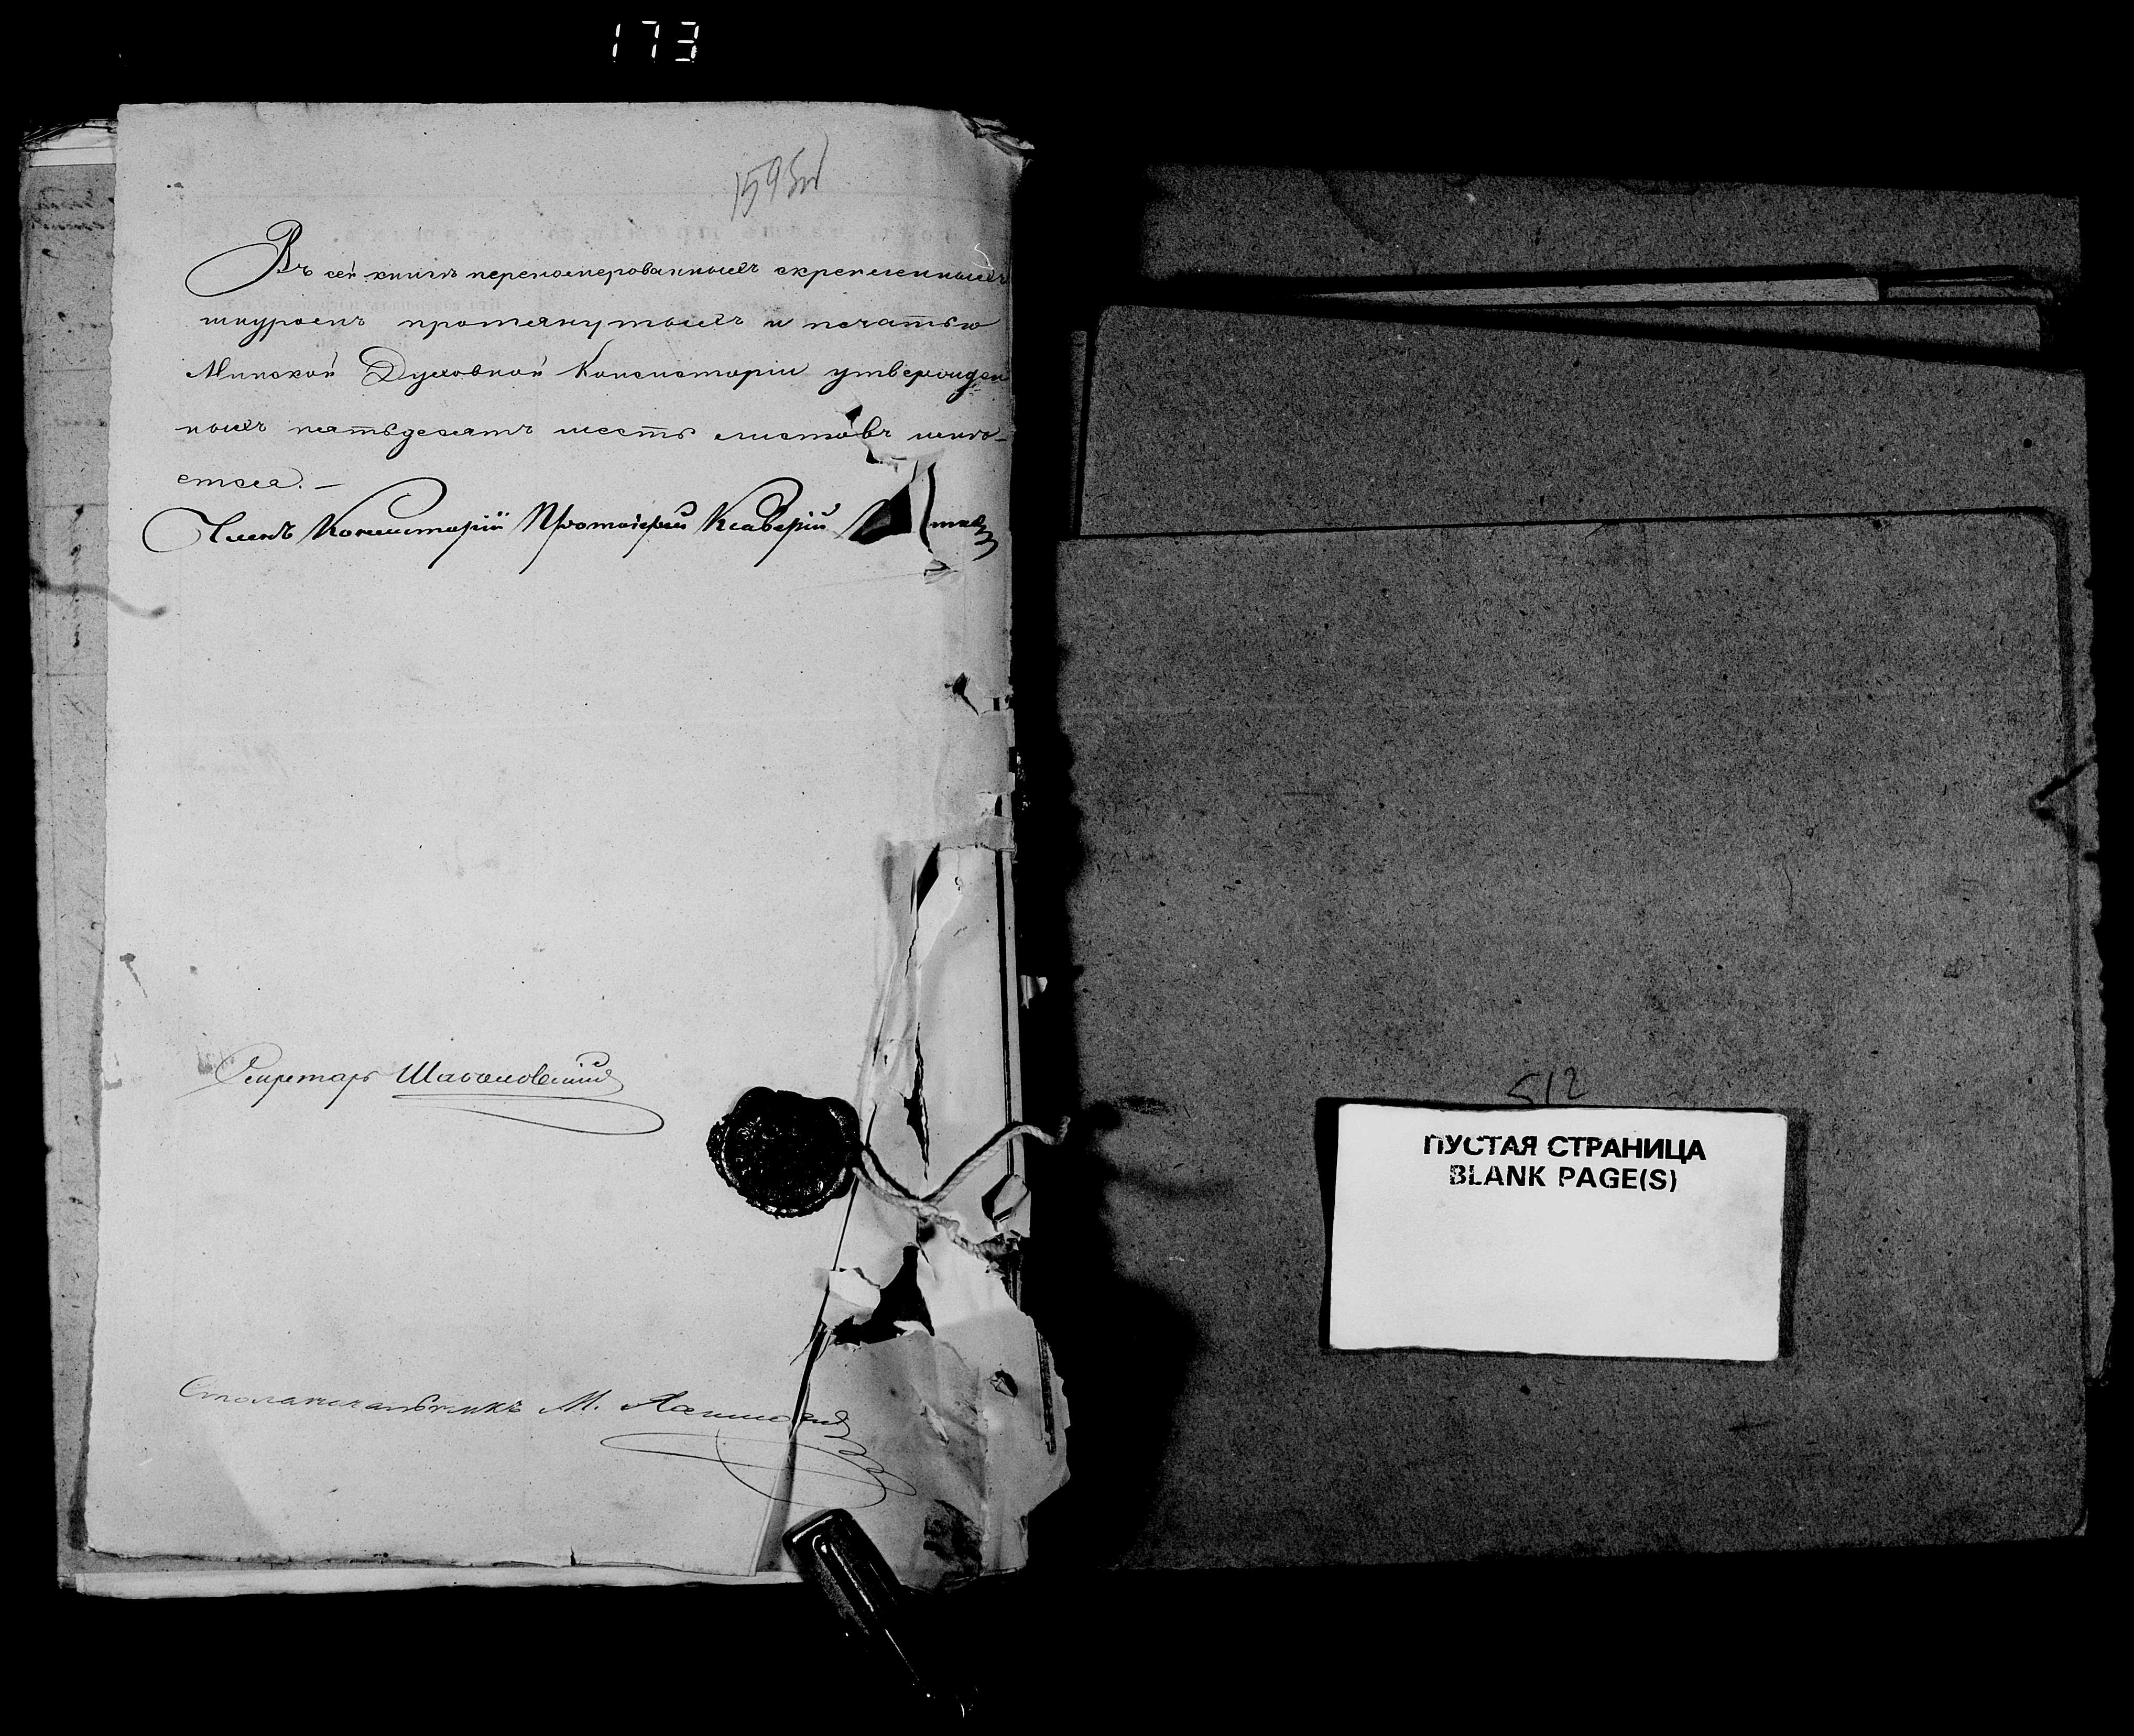 173
Въ сей книгѣ перенумерованныхъ скрепленныхъ
шнуромъ протянутыхъ и печатью
Минской Духовной Консисторіи утвержден
ныхъ пятьдесятъ шесть листовъ имѣ-
ется.
Членъ Консисторіи Протоіерей Ксаверій
Секретарь
Столоначальникъ М.
512
ПУСТАЯ СТРАНИЦА
BLANK PAGE(S)